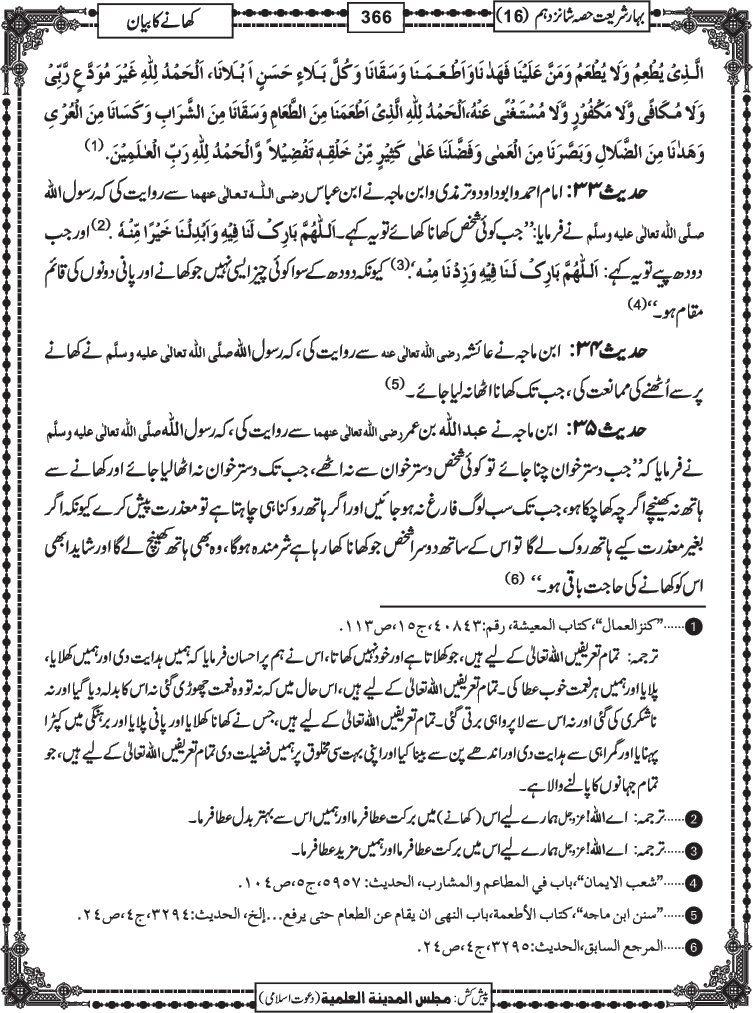 بہارِ شریعت حصہ شانزدہم (16)
366
کھانے کا بیان
الَّذِیْ یُطْعِمُ وَلَا یُطْعَمُ وَمَنَّ عَلَیْنَا فَھَدٰنَا وَاَطْعَـمَـنَا وَسَقَانَا وَکُلَّ بَـلَاءٍ حَسَنٍ اَ بْـلَانَا، اَلْحَمْدُ لِلّٰہِ غَیْرَ مُوَدَّعٍ رَّبِّیْ
وَلَا مُـکَافًی وَّلَا مَکْفُوْرٍ وَّلَا مُسْتَـغْنًی عَنْہُ، اَلْحَمْدُ لِلّٰہِ الَّذِیْ اَطْعَمَنَا مِنَ الطَّعَامِ وَسَقَانَا مِنَ الشَّرَابِ وَکَسَانَا مِنَ الْعُرْیِ
وَھَدٰنَا مِنَ الضَّلَالِ وَبَصَّرَنَا مِنَ الْعَمٰی وَفَضَّلَنَا عَلٰی کَثِیْرٍ مِّنْ خَلْقِہٖ تَفْضِیْلاً وَّالْحَمْدُ لِلّٰہِ رَبِّ الْعٰـلَمِیْنَ.(1)
حدیث ۳۳: امام احمد و ابوداود و ترمذی و ابن ماجہ نے ابن عباس رضی اللہ تعالٰی عنہما سے روایت کی کہ رسول اللہ
صلَّی اللہ تعالٰی علیہ وسلَّم نے فرمایا: ’’جب کوئی شخص کھانا کھائے تو یہ کہے۔ اَللّٰھُمَّ بَارِکْ لَنَا فِیْہِ وَاَبْدِلْـنَا خَیْرًا مِنْـہُ .(2) اور جب
دودھ پیے تو یہ کہے: اَللّٰھُمَّ بَارِکْ لَـنَا فِیْہِ وَزِدْ نَا مِنْـہ‘.(3) کیونکہ دودھ کے سوا کوئی چیز ایسی نہیں جو کھانے اور پانی دونوں کی قائم
مقام ہو۔‘‘(4)
حدیث ۳۴: ابن ماجہ نے عائشہ رضی اللہ تعالٰی عنہ سے روایت کی، کہ رسول اللہ صلَّی اللہ تعالٰی علیہ وسلَّم نے کھانے
پر سے اُٹھنے کی ممانعت کی، جب تک کھانا اٹھا نہ لیا جائے۔(5)
حدیث ۳۵: ابن ماجہ نے عبداللہ بن عمر رضی اللہ تعالٰی عنہما سے روایت کی، کہ رسول اللہ صلَّی اللہ تعالٰی علیہ وسلَّم
نے فرمایا کہ ’’جب دسترخوان چنا جائے تو کوئی شخص دسترخوان سے نہ اٹھے، جب تک دسترخوان نہ اٹھا لیا جائے اور کھانے سے
ہاتھ نہ کھینچے اگرچہ کھا چکا ہو، جب تک سب لوگ فارغ نہ ہو جائیں اور اگر ہاتھ روکنا ہی چاہتا ہے تو معذرت پیش کرے کیونکہ اگر
بغیر معذرت کیے ہاتھ روک لے گا تو اس کے ساتھ دوسرا شخص جو کھانا کھا رہا ہے شرمندہ ہوگا، وہ بھی ہاتھ کھینچ لے گا اور شاید ابھی
اس کو کھانے کی حاجت باقی ہو۔‘‘ (6)
1 ......”کنزالعمال“، کتاب المعیشۃ، رقم: ۴۰۸۴۳، ج۱۵، ص۱۱۳.
ترجمہ: تمام تعریفیں اللہ تعالٰی کے لیے ہیں، جو کھلاتا ہے اور خود نہیں کھاتا، اس نے ہم پر احسان فرمایا کہ ہمیں ہدایت دی اور ہمیں کھلایا،
پلایا اور ہمیں ہر نعمت خوب عطا کی۔ تمام تعریفیں اللہ تعالٰی کے لیے ہیں، اس حال میں کہ نہ تو وہ نعمت چھوڑی گئی نہ اس کا بدلہ دیا گیا اور نہ
ناشکری کی گئی اور نہ اس سے لاپرواہی برتی گئی۔ تمام تعریفیں اللہ تعالٰی کے لیے ہیں، جس نے کھانا کھلایا اور پانی پلایا اور برہنگی میں کپڑا
پہنایا اور گمراہی سے ہدایت دی اور اندھے پن سے بینا کیا اور اپنی بہت سی مخلوق پر ہمیں فضیلت دی تمام تعریفیں اللہ تعالٰی کے لیے ہیں، جو
تمام جہانوں کا پالنے والا ہے۔
2 ......ترجمہ: اے اللہ! عزوجل ہمارے لیے اس (کھانے) میں برکت عطا فرما اور ہمیں اس سے بہتر بدل عطا فرما۔
3 ......ترجمہ: اے اللہ! عزوجل ہمارے لیے اس میں برکت عطا فرما اور ہمیں مزید عطا فرما۔
4 ......”شعب الایمان“، باب في المطاعم والمشارب، الحدیث: ۵۹۵۷، ج۵، ص۱۰۴.
5 ......”سنن ابن ماجہ“، کتاب الأطعمۃ، باب النھی ان یقام عن الطعام حتی یرفع...إلخ، الحدیث: ۳۲۹۴، ج۴، ص۲۴.
6 ......المرجع السابق، الحدیث: ۳۲۹۵، ج۴، ص۲۴.
پیش کش: مجلس المدینۃ العلمیۃ (دعوت اسلامی)